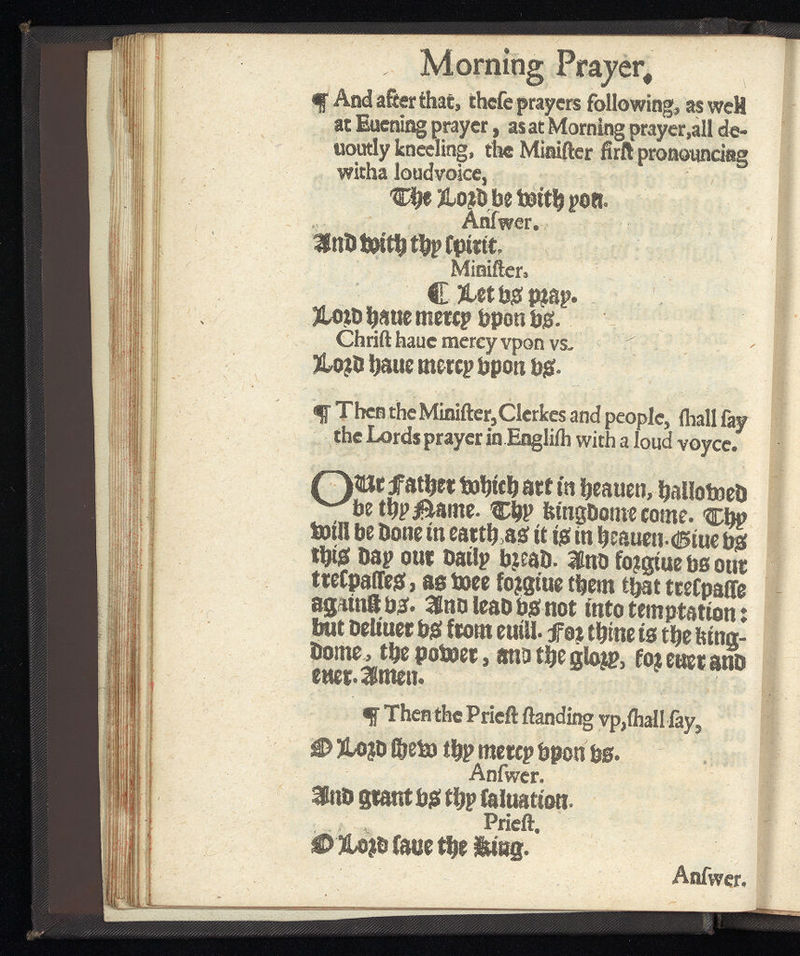 Morning Prayer.
¶ And after that, theſe prayers following, as well
at Euening prayer, as at Morning prayer, all de-
uoutly kneeling, the Miniſter firſt pronouncing
with a loud voice,
The Lord be with you.
Anſwer.
And with thy ſpirit.
Miniſter.
¶ Let vs pray.
Lord haue mercy vpon vs.
Chriſt haue mercy vpon vs.
Lord haue mercy vpon vs.
¶ Then the Miniſter, Clerkes and people, ſhall ſay
the Lords prayer in Engliſh with a loud voyce.
OUr Father which art in heauen, hallowed
be thy Name. Thy kingdome come. Thy
will be done in earth, as it is in heauen. Giue vs
this day our daily bread. And forgiue vs our
treſpaſſes, as wee forgiue them that treſpaſſe
againſt vs. And lead vs not into temptation:
but deliuer vs from euill. For thine is the king-
dome, the power, and the glory, for euer and
euer. Amen.
¶ Then the Prieſt ſtanding vp, ſhall ſay,
O Lord ſhew thy mercy vpon vs.
Anſwer.
And grant vs thy ſaluation.
Prieſt.
O Lord ſaue the King.
Anſwer.